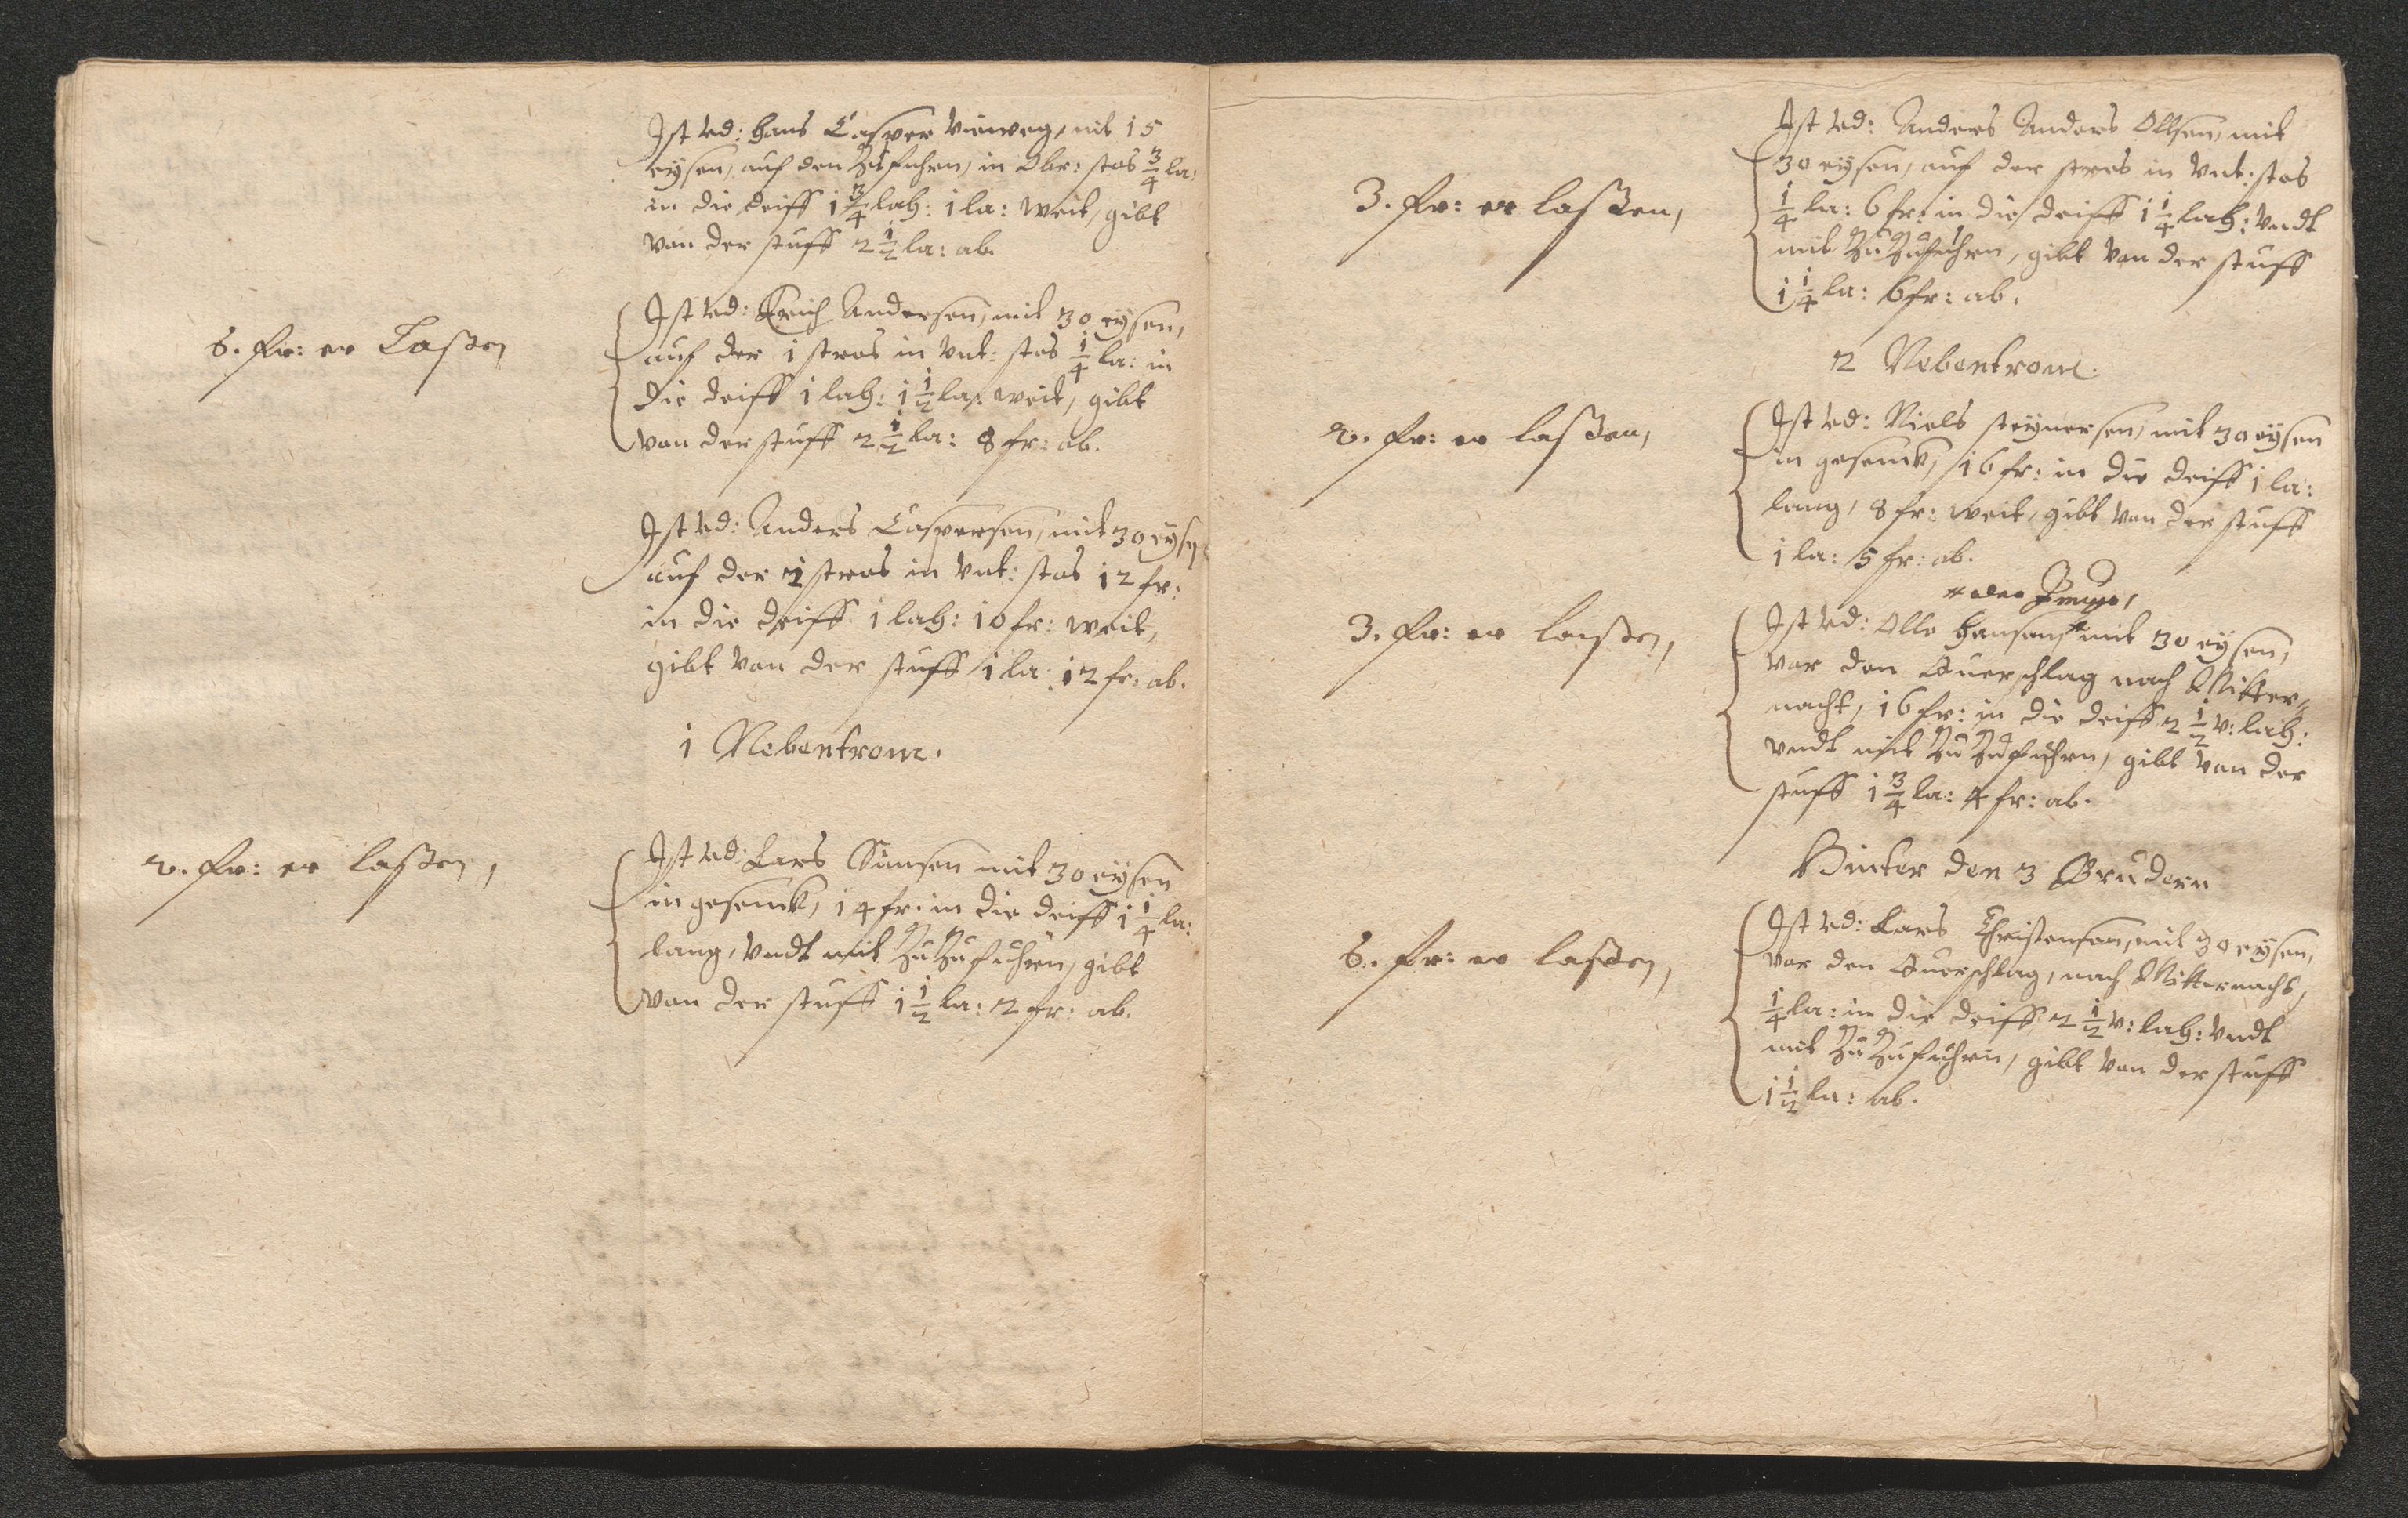 Ist Ved: Hans Casper Vieweg, mit 15
eysen, auf den Zufuhren, in Obr: stos 3/4 la:
in die deiff 1 3/4 lach: 1 la: weit, gibt
von der stuff 2 1/2 la: ab.
6. fr: er Laßen
Ist Ved: Erich Andersen, mit 30 eysen,
auf der 1 stros in Vnt: stos 1/4 la: in
die deiff 1 lach: 1 1/2 la: weit, gibt
von der stuff 2 1/2 la: 8 fr: ab.
Ist Ved: Anders Caspersen, mit 30 eysen
auf der 2 stros in Vnt: stos 12 fr:
in die deiff 1 lach: 10 fr: weit,
gibt von der stuff 1 la: 12 fr: ab.
1 Nebentrom.
2. fr: er laßen,
Ist Ved: Lars Simsen mit 30 eysen
in gesenck, 14 fr: in die deiff 1 1/4 la:
lang, Vndt mit Zu Zufuhren, gibt
von der stuff 1 1/2 la: 2 fr: ab.
3. fr: er laßen,
Ist Ved: Anders Anders Ollsen, mit
30 eysen, auf der stros in Vnt: stos
1/4 la: 6 fr: in die deiff 1 1/4 lach: Vndt
mit Zu Zufuhren, gibt von der stuff
1 1/4 la: 6 fr: ab.
2 Nebentrom.
2. fr: er laßen,
Ist Ved: Niels steynersen, mit 30 eysen
in gesenck, 16 fr: in die deiff 1 la:
lang, 8 fr: weit, gibt von der stuff
1 la: 5 fr: ab.
* der Junge,
3. fr: er laßen,
Ist Ved: Olle Hansen,* mit 30 eysen,
vor den Querschlag nach Mitter-
nacht, 16 fr: in die deiff 2 1/2 v: lach:
Vndt mit Zu Zufuhren, gibt von der
stuff 1 3/4 la: 4 fr: ab.
Hinter den 3 Brudern
6. fr: er laßen,
Ist Ved: Lars Christensen, mit 30 eysen,
vor den Querschlag, nach Mitternacht,
1/4 la: in die deiff 2 1/2 v: lach: Vndt
mit Zu Zufuhren, gibt von der stuff
1 1/2 la: ab.